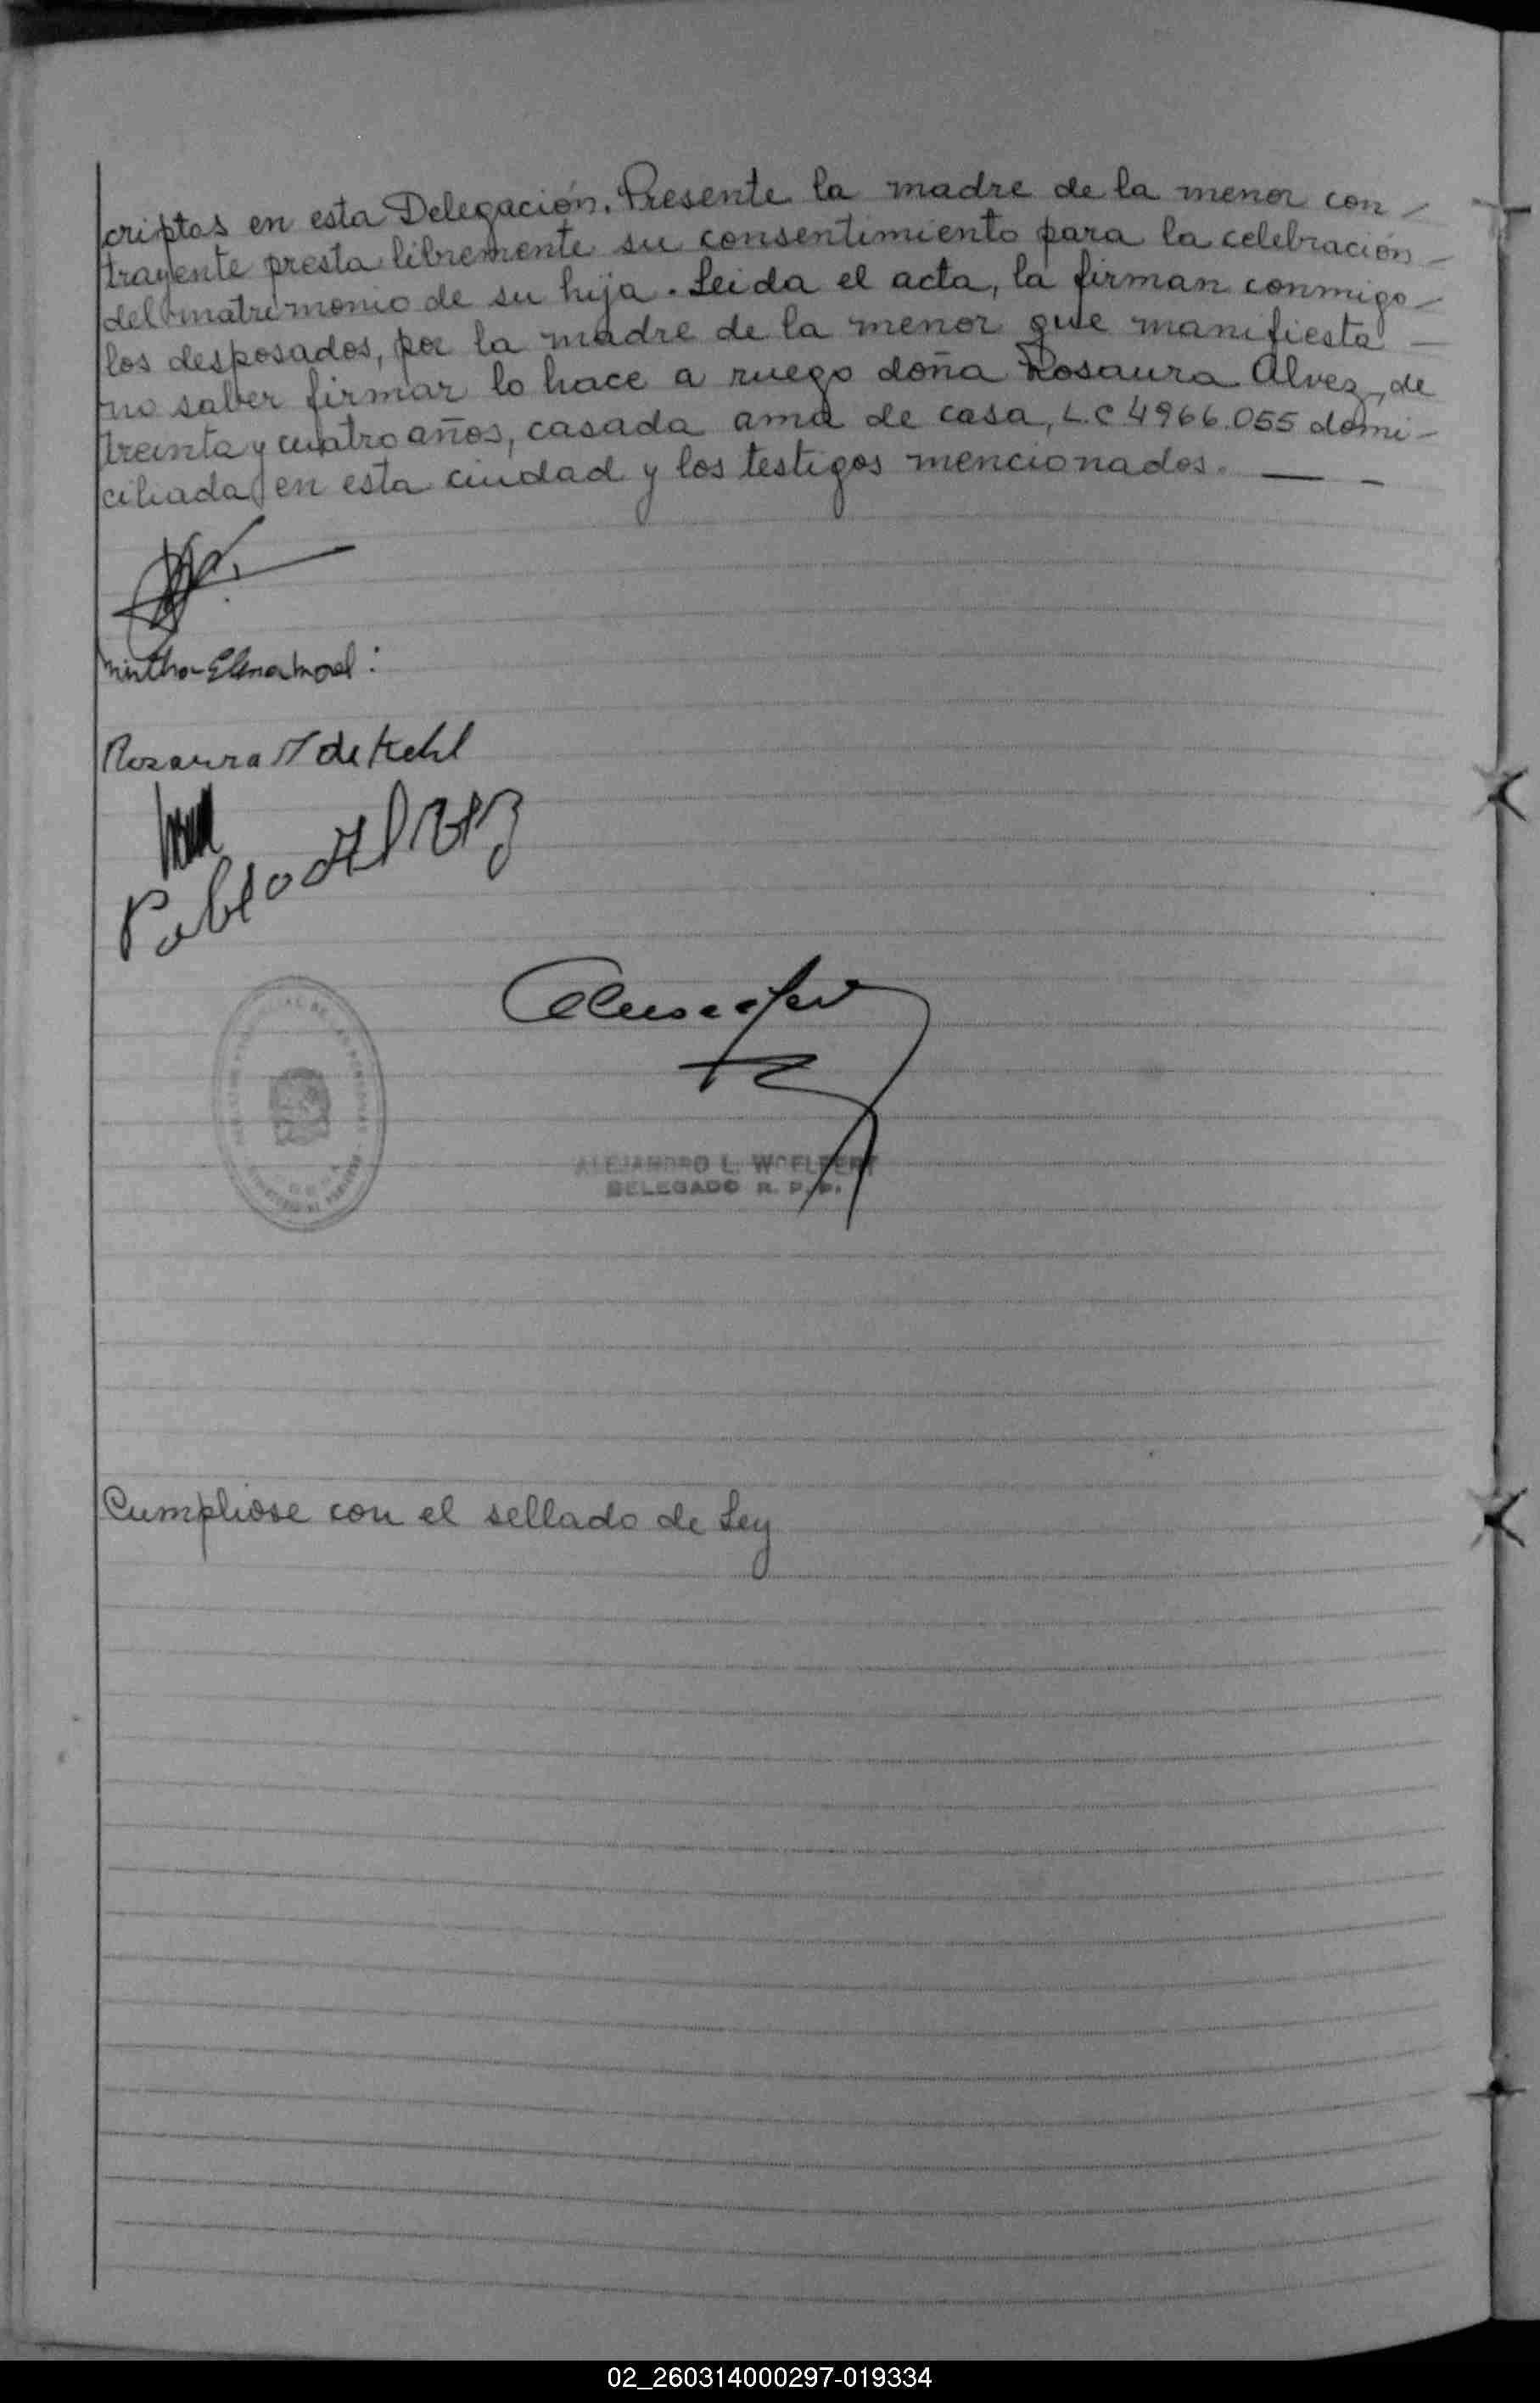 criptos en esta Delegación. Presente la madre de la menor con-
trayente presta libremente su consentimiento para la celebración-
del matrimonio de su hija. Leida el acta, la firman conmigo-
los desposados, por la madre de la menor que manifiesta —
no saber firmar lo hace a ruego doña Rosaura Alvez, de
treinta y cuatro años, casada ama de casa, L.C 4966.055 domi-
ciliada en esta ciudad y los testigos mencionados. — -
Mirtha Elena
Rosaura A de Kehl
Pablo Alvez
ALEJANDRO L. WOELFERT
DELEGADO R. P. P.
Cumpliose con el sellado de Ley
02_260314000297-019334